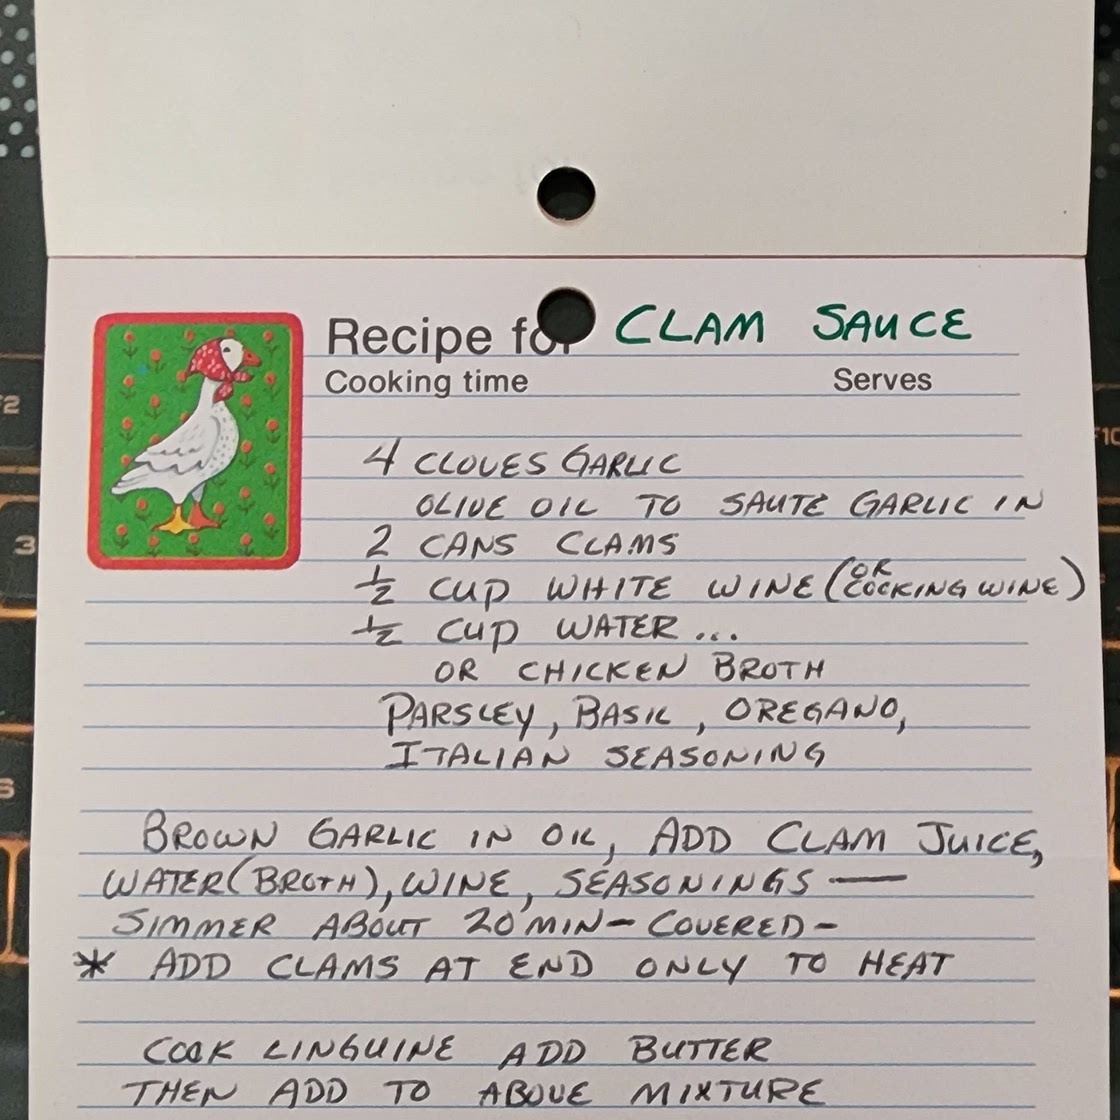 Recipe for CLAM SAUCE
Cooking time Serves
4 CLOVES GARLIC
OLIVE OIL TO SAUTE GARLIC IN
2 CANS CLAMS
1/2 CUP WHITE WINE (OR COOKING WINE)
1/2 CUP WATER...
OR CHICKEN BROTH
PARSLEY, BASIL, OREGANO,
ITALIAN SEASONING
BROWN GARLIC IN OIL, ADD CLAM JUICE,
WATER (BROTH), WINE, SEASONINGS —
SIMMER ABOUT 20 MIN - COVERED -
* ADD CLAMS AT END ONLY TO HEAT
COOK LINGUINE ADD BUTTER
THEN ADD TO ABOVE MIXTURE
F2
3
F10